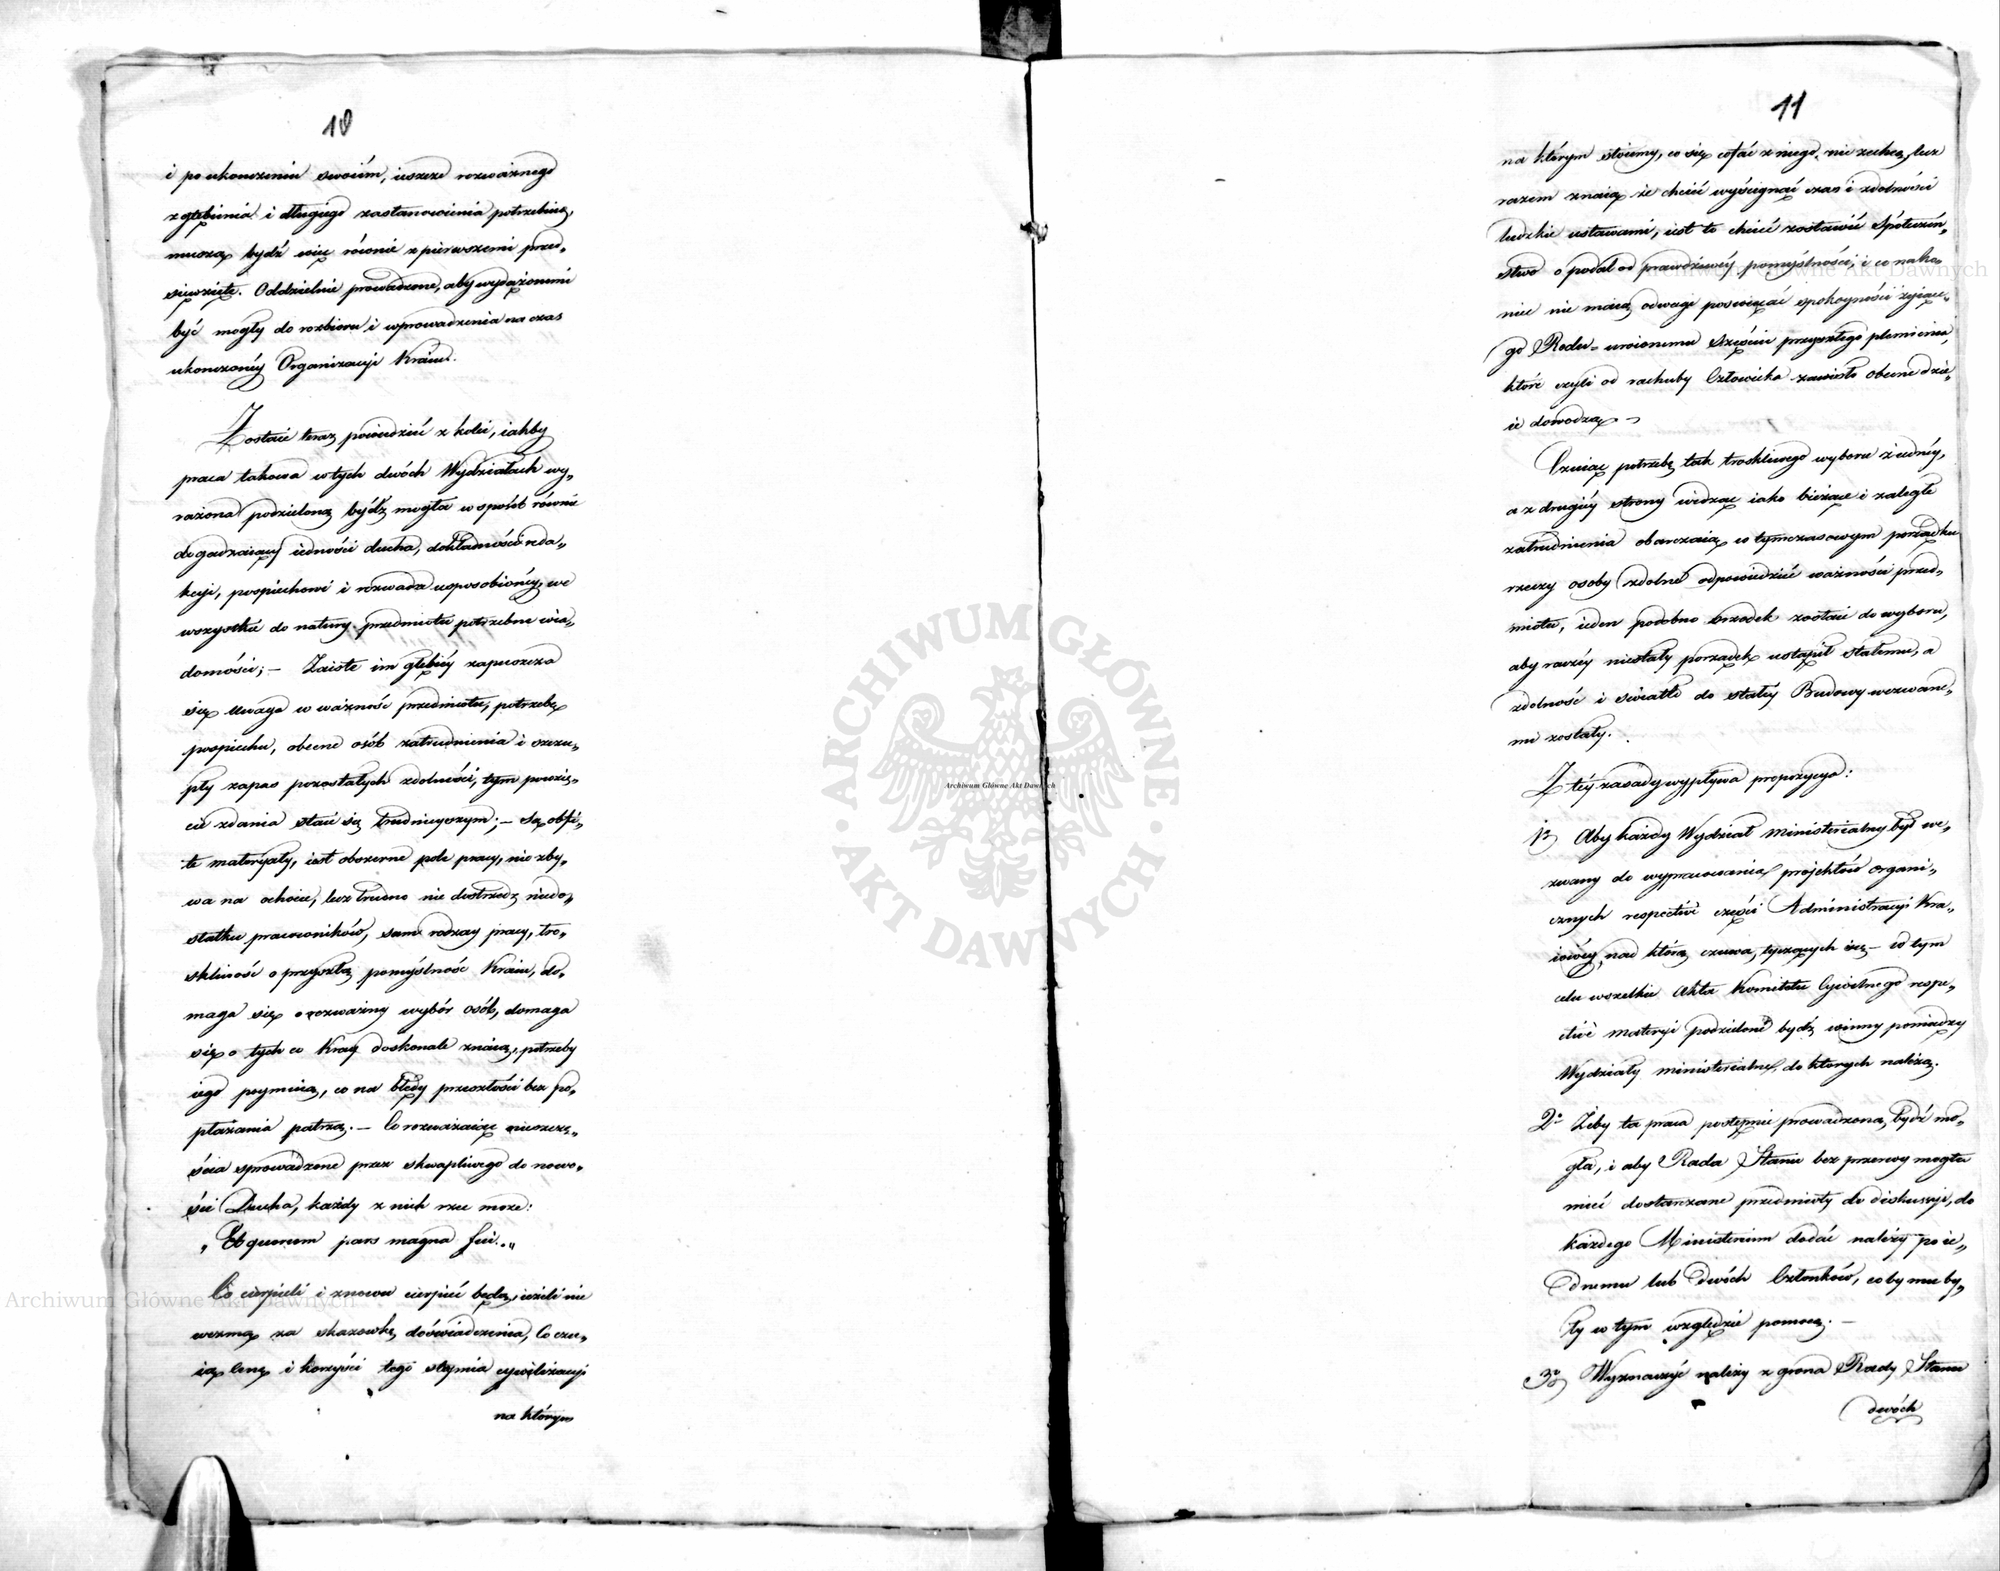 10
i po ukończeniu swoim, ieszcze rozważnego
zgłębienia i długiego zastanowienia potrzebuią,
muszą bydź więc równie z pierwszemi przed„
sięwzięte. Oddzielnie prowadzone, aby wydążonemi
być mogły do rozbioru i wprowadzenia na czas
ukonczonéy Organizacyi Kraiu.
Zostaie teraz powiedzieć z kolei, iakby
praca takowa w tych dwóch Wydziałach wy„
rażona podzieloną bydź mogła w sposób równie
dogadzaiący iedności ducha, dokładności reda„
kcyi, pospiechowi i rozwadze usposobionéy we
wszystkie do natury przedmiotu potrzebne wia„
domości; – Zaiste im głębiéy zapuszcza
się uwaga w ważność przedmiotu, potrzebę
pospiechu, obecne osób zatrudnienia i szczu„
pły zapas pozostałych zdolności, tym powzię„
cie zdania staie się trudnieyszym; – Są obfi„
te materyały, iest obszerne pole pracy, nie zby„
wa na ochocie, lecz trudno nie dostrzedz niedo„
statku pracowników, sam rodzay pracy, tro„
skliwość o przyszłą pomyślność Kraiu, do„
maga się o rozważny wybór osób, domaga
się o tych co Kray doskonale znaią, potrzeby
iego poymuią, co na błędy przeszłości bez po„
błażania patrzą. – Co rozważaiąc nieszczę„
ścia sprowadzone przez skwapliwego do nowo„
ści Ducha, każdy z nich rzec może:
„Et quorum pars magna fui.„
Co cierpieli i znowu cierpieć będą, ieżeli nie
wezmą za skazówkę doświadczenia, Co czu„
ią cenę i korzyści tego stopnia cywilizacyi
na którym
11
na którym stoiemy, co się cofać z niego nie zechcą, lecz
razem znaią że chcieć wyścignąć czas i zdolności
ludzkie ustawami, iest to chcieć zostawić Społeczeń„
stwo o podal od prawdziwey pomyślności, i co nako„
niec nie maią odwagi poswięcać spokoyności żyiące„
go Rodu urojonemu szczęściu przyszłego plemienia,
które czyli od rachuby Człowieka zawisło obecne dzie„
ie dowodzą.
Czuiąc potrzebę tak troskliwego wyboru z iednéy,
a z drugiéy strony widząc iako bieżące i zaległe
zatrudnienia obarczaią w tymczasowym porządku
rzeczy osoby zdolne odpowiedzieć ważności przed„
miotu, ieden podobno środek zostaie do wyboru,
aby raczéy niestały porządek ustąpił stałemu, a
zdolność i światło do stałéy Budowy wezwane„
mi zostały.
Z téy zasady wypływa propozycya:
1º Aby każdy Wydział ministerialny był we„
zwany do wypracowania projektów organi„
cznych respective części Administracyi Kra„
iowéy, nad którą czuwa, tyczących się – w tym
celu wszelkie Akta Komitetu Cywilnego respe„
ctive materyi podzielone bydź winny pomiędzy
Wydziały ministerialne, do których należą.
2º Żeby ta praca postępnie prowadzoną bydź mo„
gła, i aby Rada Stanu bez przerwy mogła
mieć dostarczane przedmioty do diskussyi, do
każdego Ministerium dodać należy po ie„
dnemu lub dwóch Członków, coby mu by„
ły w tym względzie pomocą. –
3º Wyznaczyć należy z grona Rady Stanu
dwóch
ARCHIWUM GŁÓWNE AKT DAWNYCH
Archiwum Główne Akt Dawnych